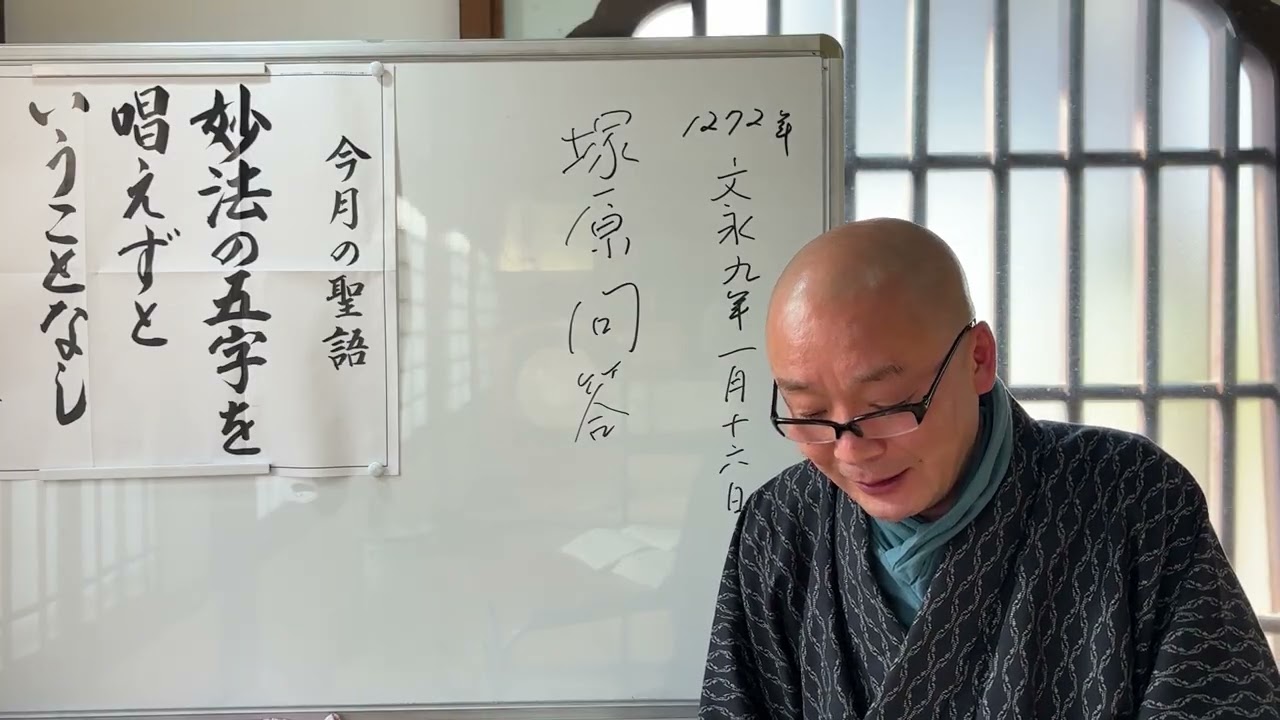 1272年
文永九年一月十六日
塚原問答
今月の聖語
妙法の五字を
唱えずと
いうことなし